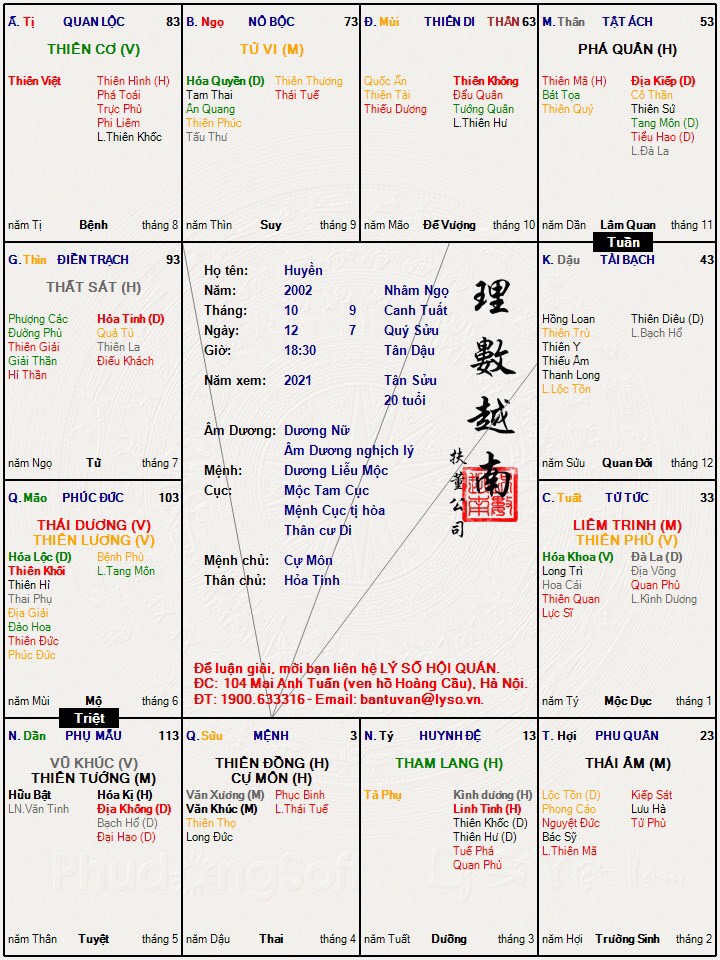 Ã. Tị QUAN LỘC 83
THIÊN CƠ (V)
Thiên Việt
Thiên Hình (H)
Phá Toái
Trực Phù
Phi Liêm
L.Thiên Khốc
năm Tị Bệnh tháng 8
B. Ngọ NÔ BỘC 73
TỬ VI (M)
Hóa Quyền (D)
Tam Thai
Ân Quang
Thiên Phúc
Tấu Thư
Thiên Thương
Thái Tuế
năm Thìn Suy tháng 9
Đ. Mùi THIÊN DI THÂN 63
Quốc Ấn
Thiên Tài
Thiếu Dương
Thiên Không
Đẩu Quân
Tướng Quân
L.Thiên Hư
năm Mão Đế Vượng tháng 10
M. Thân TẬT ÁCH 53
PHÁ QUÂN (H)
Thiên Mã (H)
Bát Tọa
Thiên Quý
Địa Kiếp (D)
Cô Thần
Thiên Sứ
Tang Môn (D)
Tiểu Hao (D)
L.Đà La
năm Dần Lâm Quan tháng 11
Tuần
G. Thìn ĐIỀN TRẠCH 93
THẤT SÁT (H)
Phượng Các
Đường Phù
Thiên Giải
Giải Thần
Hỉ Thần
Hỏa Tinh (D)
Quả Tú
Thiên La
Điếu Khách
năm Ngọ Tử tháng 7
Họ tên: Huyền
Năm: 2002 Nhâm Ngọ
Tháng: 10 9 Canh Tuất
Ngày: 12 7 Quý Sửu
Giờ: 18:30 Tân Dậu
Năm xem: 2021 Tân Sửu
20 tuổi
Âm Dương: Dương Nữ
Âm Dương nghịch lý
Mệnh: Dương Liễu Mộc
Cục: Mộc Tam Cục
Mệnh Cục tị hòa
Thân cư Di
Mệnh chủ: Cự Môn
Thân chủ: Hỏa Tinh
理數越南
扶董公司
Để luận giải, mời bạn liên hệ LÝ SỐ HỘI QUÁN.
ĐC: 104 Mai Anh Tuấn (ven hồ Hoàng Cầu), Hà Nội.
ĐT: 1900.633316 - Email: bantuvan@lyso.vn.
K. Dậu TÀI BẠCH 43
Hồng Loan
Thiên Trù
Thiên Y
Thiếu Âm
Thanh Long
L.Lộc Tồn
Thiên Diêu (D)
L.Bạch Hổ
năm Sửu Quan Đới tháng 12
Q. Mão PHÚC ĐỨC 103
THÁI DƯƠNG (V)
THIÊN LƯƠNG (V)
Hóa Lộc (D)
Thiên Khôi
Thiên Hỉ
Thai Phụ
Địa Giải
Đào Hoa
Thiên Đức
Phúc Đức
Bệnh Phù
L.Tang Môn
năm Mùi Mộ tháng 6
Triệt
C. Tuất TỬ TỨC 33
LIÊM TRINH (M)
THIÊN PHỦ (V)
Hóa Khoa (V)
Long Trì
Hoa Cái
Thiên Quan
Lực Sĩ
Đà La (D)
Địa Võng
Quan Phù
L.Kình Dương
năm Tý Mộc Dục tháng 1
N. Dần PHỤ MẪU 113
VŨ KHÚC (V)
THIÊN TƯỚNG (M)
Hữu Bật
LN.Văn Tinh
Hóa Kị (H)
Địa Không (D)
Bạch Hổ (D)
Đại Hao (D)
năm Thân Tuyệt tháng 5
Q. Sửu MỆNH 3
THIÊN ĐỒNG (H)
CỰ MÔN (H)
Văn Xương (M)
Văn Khúc (M)
Thiên Thọ
Long Đức
Phục Binh
L.Thái Tuế
năm Dậu Thai tháng 4
N. Tý HUYNH ĐỆ 13
THAM LANG (H)
Tả Phụ
Kình dương (H)
Linh Tinh (H)
Thiên Khốc (D)
Thiên Hư (D)
Tuế Phá
Quan Phủ
năm Tuất Dưỡng tháng 3
T. Hợi PHU QUÂN 23
THÁI ÂM (M)
Lộc Tồn (D)
Phong Cáo
Nguyệt Đức
Bác Sỹ
L.Thiên Mã
Kiếp Sát
Lưu Hà
Tử Phù
năm Hợi Trường Sinh tháng 2